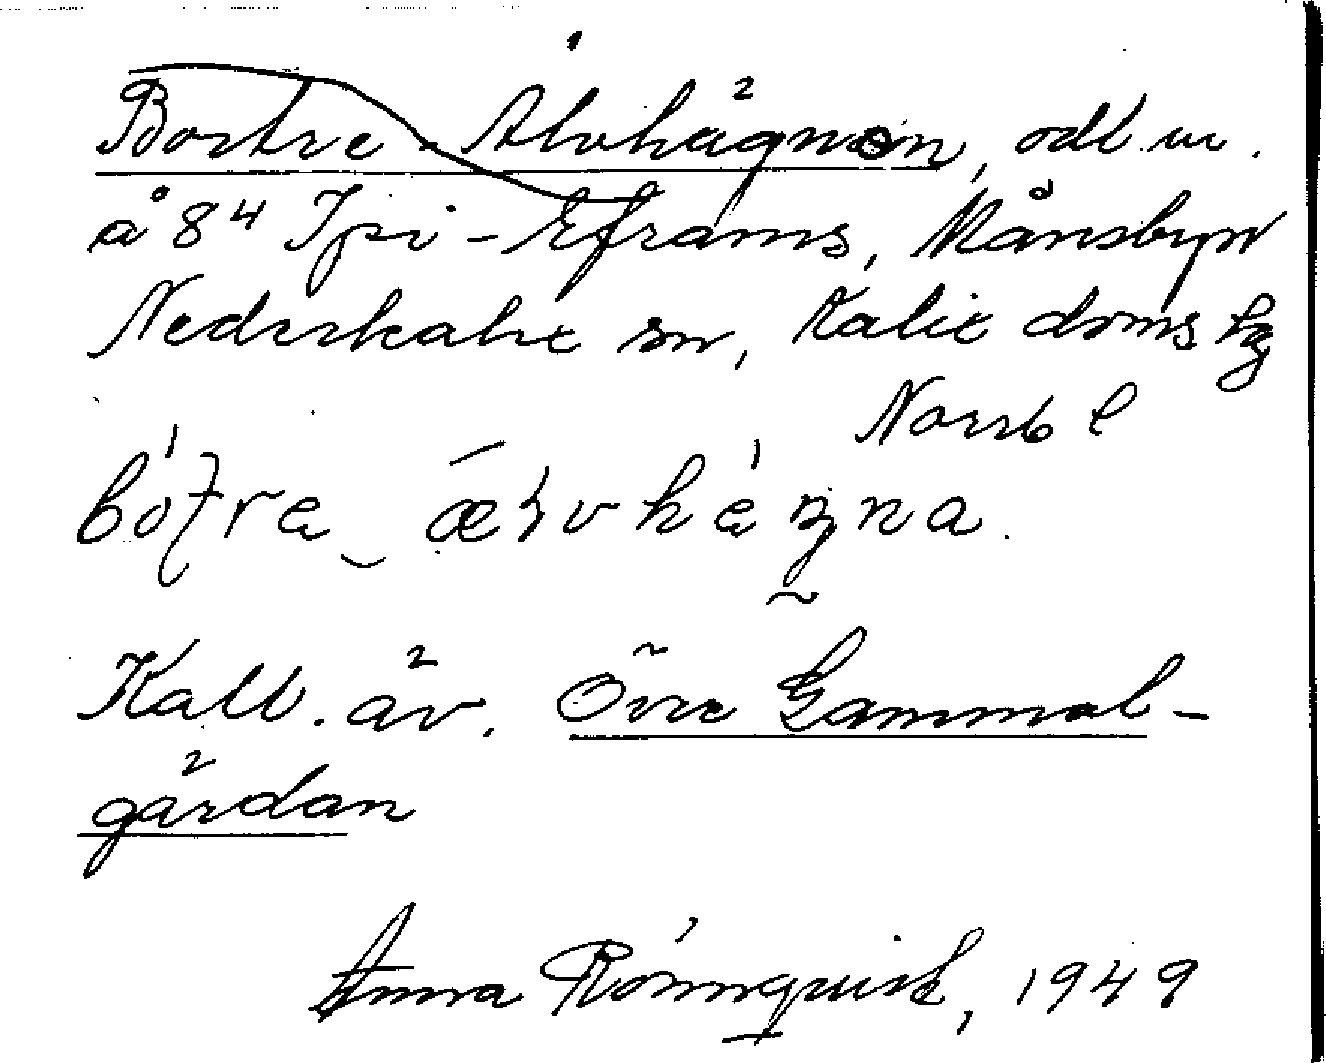 Bortre-Älvhägnan, odl. m.
å 8⁴ Ipi-Eframs, Månsbyn
Nederkalix sn, Kalix doms hg
Norrb l
Kall. äv. Övre Gammal-
gårdan
Anna Rönnquist, 1949